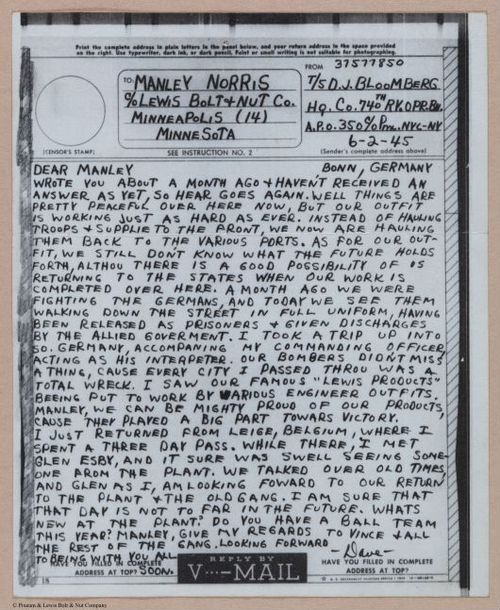 Print the complete address in plain letters in the panel below, and your return address in the space provided
on the right. Use typewriter, dark ink, or dark pencil. Faint or small writing is not suitable for photographing.
TO: MANLEY NORRIS
% LEWIS BOLT & NUT CO.
MINNEAPOLIS (14)
MINNESOTA
FROM 37577850
T/5 D.J. BLOOMBERG
HQ. CO. 740TH RY. OPR. BN.
A.P.O. 350 % P.M. NYC-NY
6-2-45
(CENSOR'S STAMP)
SEE INSTRUCTION NO. 2
(Sender's complete address above)
DEAR MANLEY BONN, GERMANY
WROTE YOU ABOUT A MONTH AGO & HAVEN'T RECEIVED AN
ANSWER AS YET, SO HEAR GOES AGAIN. WELL THINGS ARE
PRETTY PEACEFUL OVER HERE NOW, BUT OUR OUTFIT
IS WORKING JUST AS HARD AS EVER. INSTEAD OF HAULING
TROOPS & SUPPLIE TO THE FRONT, WE NOW ARE HAULING
THEM BACK TO THE VARIOUS PORTS. AS FOR OUR OUT-
FIT, WE STILL DON'T KNOW WHAT THE FUTURE HOLDS
FORTH, ALTHOU THERE IS A GOOD POSSIBILITY OF US
RETURNING TO THE STATES WHEN OUR WORK IS
COMPLETED OVER HERE. A MONTH AGO WE WERE
FIGHTING THE GERMANS, AND TODAY WE SEE THEM
WALKING DOWN THE STREET IN FULL UNIFORM, HAVING
BEEN RELEASED AS PRISONERS & GIVEN DISCHARGES
BY THE ALLIED GOVERMENT. I TOOK A TRIP UP INTO
SO. GERMANY, ACCOMPANING MY COMMANDING OFFICER,
ACTING AS HIS INTERPETER. OUR BOMBERS DIDN'T MISS
A THING, CAUSE EVERY CITY I PASSED THROU WAS A
TOTAL WRECK. I SAW OUR FAMOUS "LEWIS PRODUCTS"
BEEING PUT TO WORK BY VARIOUS ENGINEER OUTFITS.
MANLEY, WE CAN BE MIGHTY PROUD OF OUR PRODUCTS,
CAUSE THEY PLAYED A BIG PART TOWARS VICTORY.
I JUST RETURNED FROM LEIGE, BELGIUM, WHERE I
SPENT A THREE DAY PASS. WHILE THERE, I MET
GLEN ESBY, AND IT SURE WAS SWELL SEEING SOME-
ONE FROM THE PLANT. WE TALKED OVER OLD TIMES,
AND GLEN AS I, AM LOOKING FOWARD TO OUR RETURN
TO THE PLANT & THE OLD GANG. I AM SURE THAT
THAT DAY IS NOT TO FAR IN THE FUTURE. WHATS
NEW AT THE PLANT? DO YOU HAVE A BALL TEAM
THIS YEAR? MANLEY, GIVE MY REGARDS TO VINCE & ALL
THE REST OF THE GANG, LOOKING FORWARD
TO BEING WITH YOU ALL SOON. —Dave—
HAVE YOU FILLED IN COMPLETE
ADDRESS AT TOP?
REPLY BY
V···—MAIL
HAVE YOU FILLED IN COMPLETE
ADDRESS AT TOP?
© Pinziam & Lewis Bolt & Nut Company